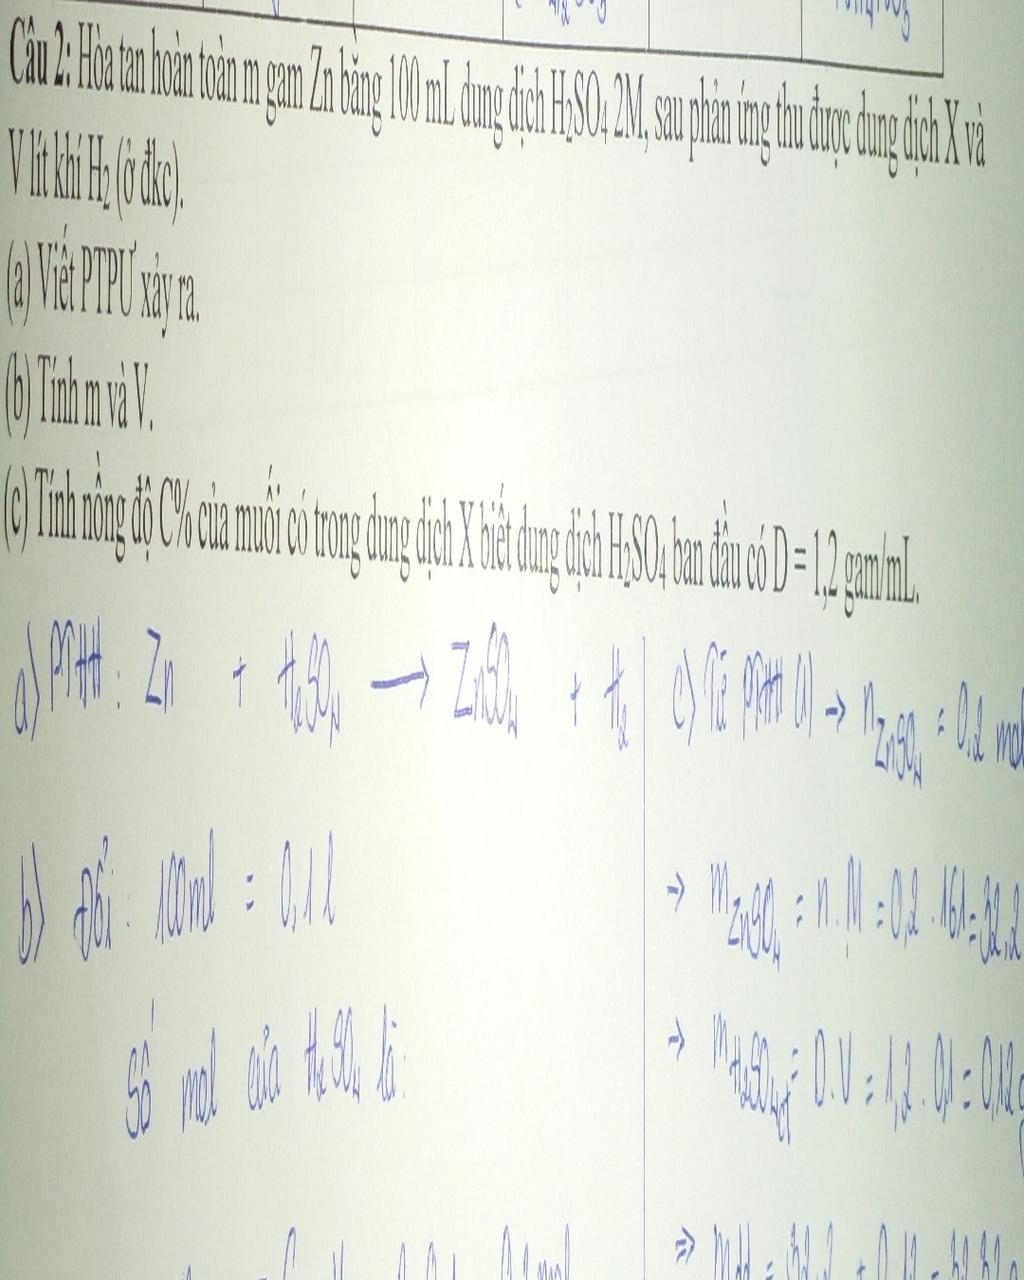 Câu 2: Hòa tan hoàn toàn m gam Zn bằng 100 mL dung dịch H₂SO₄ 2M, sau phản ứng thu được dung dịch X và
V lít khí H₂ (ở đkc).
(a) Viết PTPƯ xảy ra.
(b) Tính m và V.
(c) Tính nồng độ C% của muối có trong dung dịch X biết dung dịch H₂SO₄ ban đầu có D = 1,2 gam/mL.
a) PTHH : Zn + H₂SO₄ → ZnSO₄ + H₂
b) Đổi : 100ml = 0,1 l
Số mol của H₂SO₄ là:
c) Từ PTHH (1) → n ZnSO₄ = 0.2 mol
→ m ZnSO₄ = n . M = 0,2 . 161 = 32,2
→ m H₂SO₄ ct = D.V = 1,2 . 0,1 = 0,12g
⇒ mdd = 32,2 + 0,12 = 32,32g